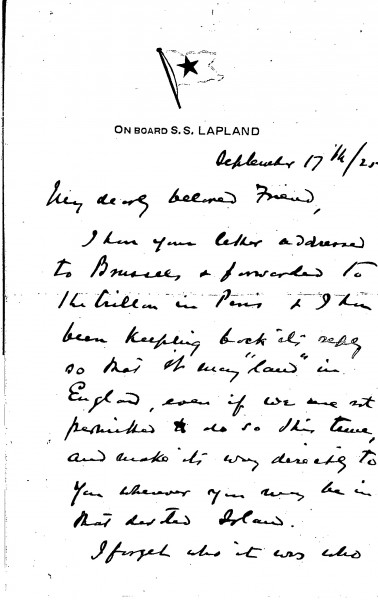 ON BOARD S.S. LAPLAND
September 17th/25
My dearly beloved Friend,
I have your letter addressed
to Brussels & forwarded to
the Crillon in Paris & I have
been keeping back its reply
so that it may "land" in
England, even if we are not
permitted to do so this time,
and make its way directly to
you wherever you may be in
that Island.
I forget who it was who